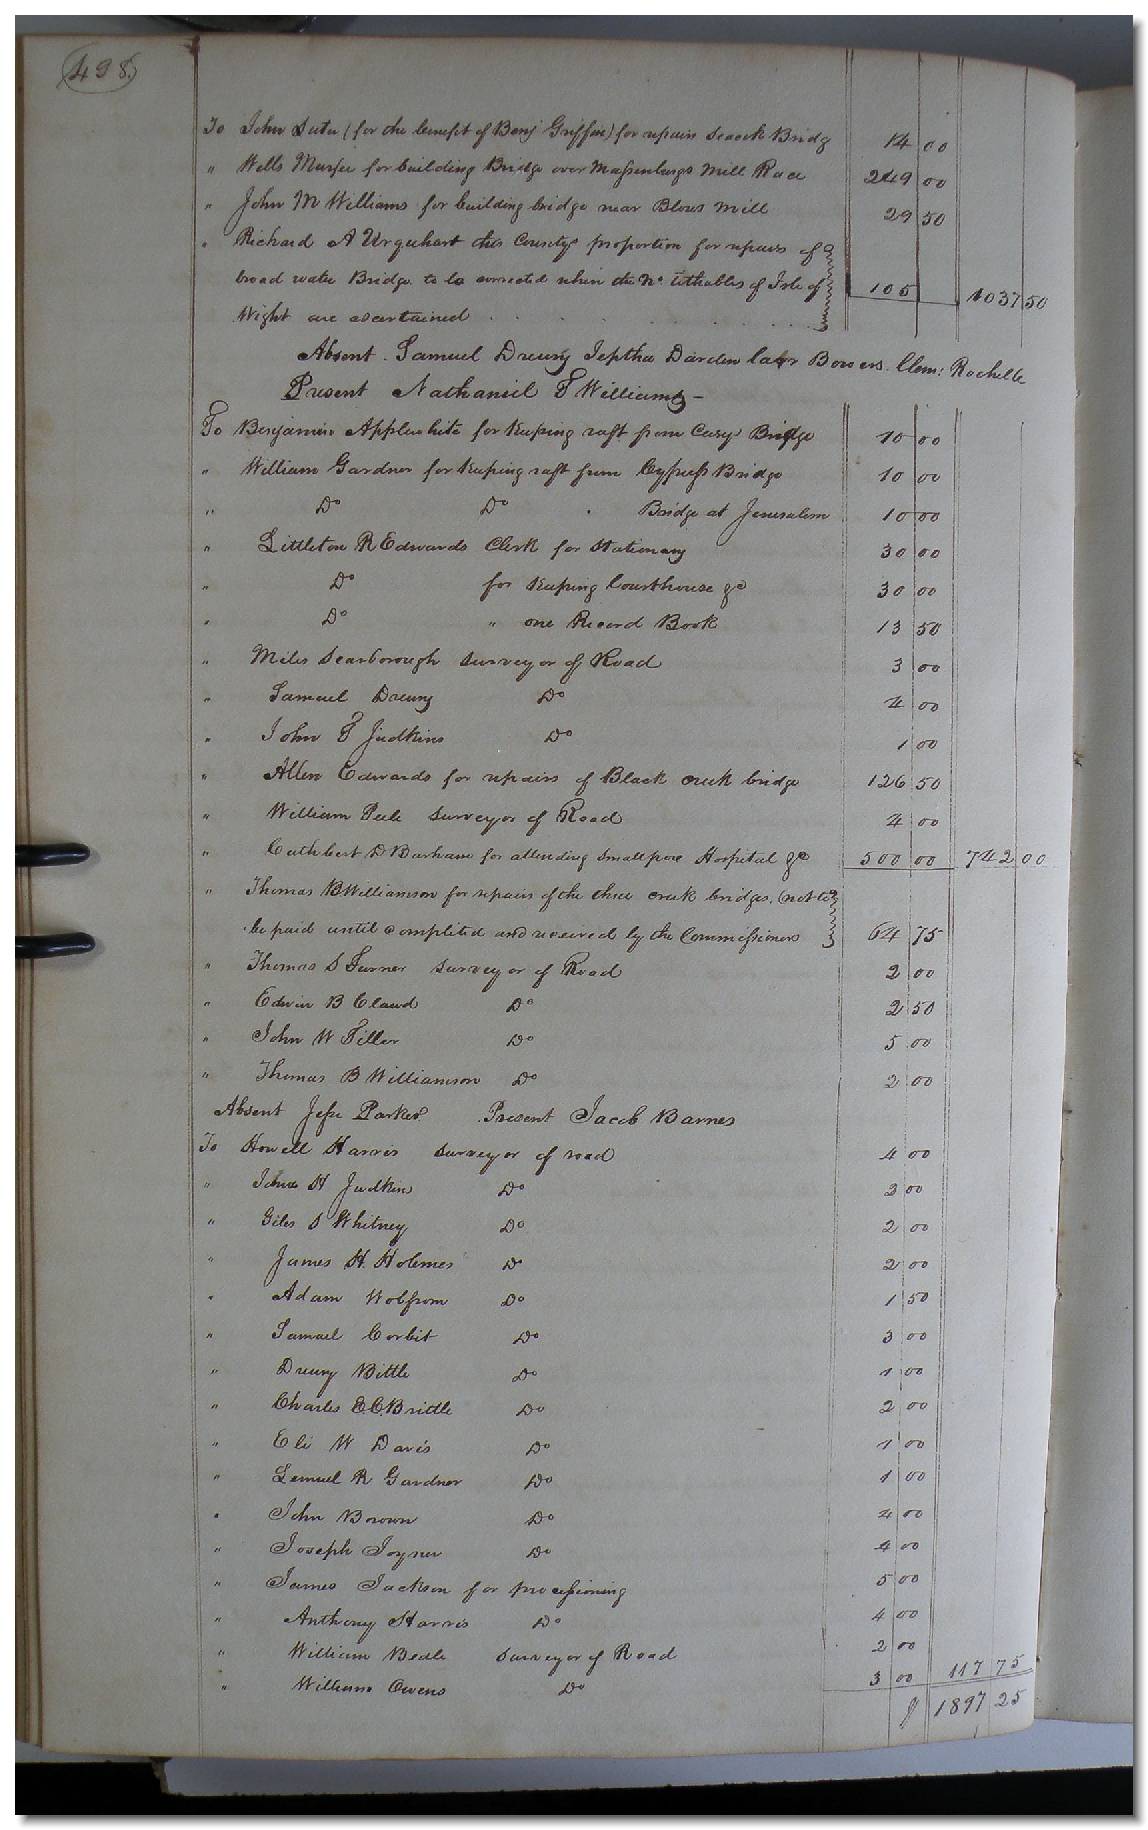 498.
To John Suter (for the benefit of Benj Griffin) for repairs Seacock Bridg 14 00
" Wells Murfee for building Bridge over Massenburgs Mill Race 249 00
" John M Williams for building bridge near Blows Mill 29 50
" Richard A Urquhart this Countys proportion for repairs of
broad water Bridge to be corrected when the No tithables of Isle of 105 1037 50
Wight are ascertained
Absent. Samuel Drewry Jeptha Darden Bowers. Clem: Rochelle
Present Nathaniel T Williams -
To Benjamin Applewhite for keeping raft from Careys Bridge 10 00
" William Gardner for keeping raft from Cypress Bridge 10 00
" Do Do " Bridge at Jerusalem 10 00
" Littleton R Edwards Clerk for Stationary 30 00
" Do for keeping Courthouse &c 30 00
" Do " one Record Book 13 50
" Miles Scarborough surveyor of Road 3 00
" Samuel Drewry Do 4 00
" John T Judkins Do 1 00
" Allen Edwards for repairs of Black creek bridge 126 50
" William Pate surveyor of Road 4 00
" Cuthbert D Barham for attending Smallpoxe Hospital &c 500 00 742 00
" Thomas B Williamson for repairs of the three creek bridges, (not to
be paid until completed and received by the Commissioners 64 75
" Thomas S Turner surveyor of Road 2 00
" Edwin B Claud Do 2 50
" John W Tiller Do 5 00
" Thomas B Williamson Do 2 00
Absent Jesse Parker Present Jacob Barnes
To Howell Harris surveyor of road 4 00
" John H Judkins Do 3 00
" Giles S Whitney Do 2 00
" James H. Holmes Do 2 00
" Adam Wolfrom Do 1 50
" Samuel Corbit Do 3 00
" Drewry Bittle Do 1 00
" Charles E.C. Bridle Do 2 00
" Eli W Davis Do 1 00
" Lemuel R Gardner Do 1 00
" John Brown Do 4 00
" Joseph Joyner Do 4 00
" James Jackson for processioning 5 00
" Anthony Harris Do 4 00
" William Beale surveyor of Road 2 00
" William Owens Do 3 00 117 75
$ 1897 25